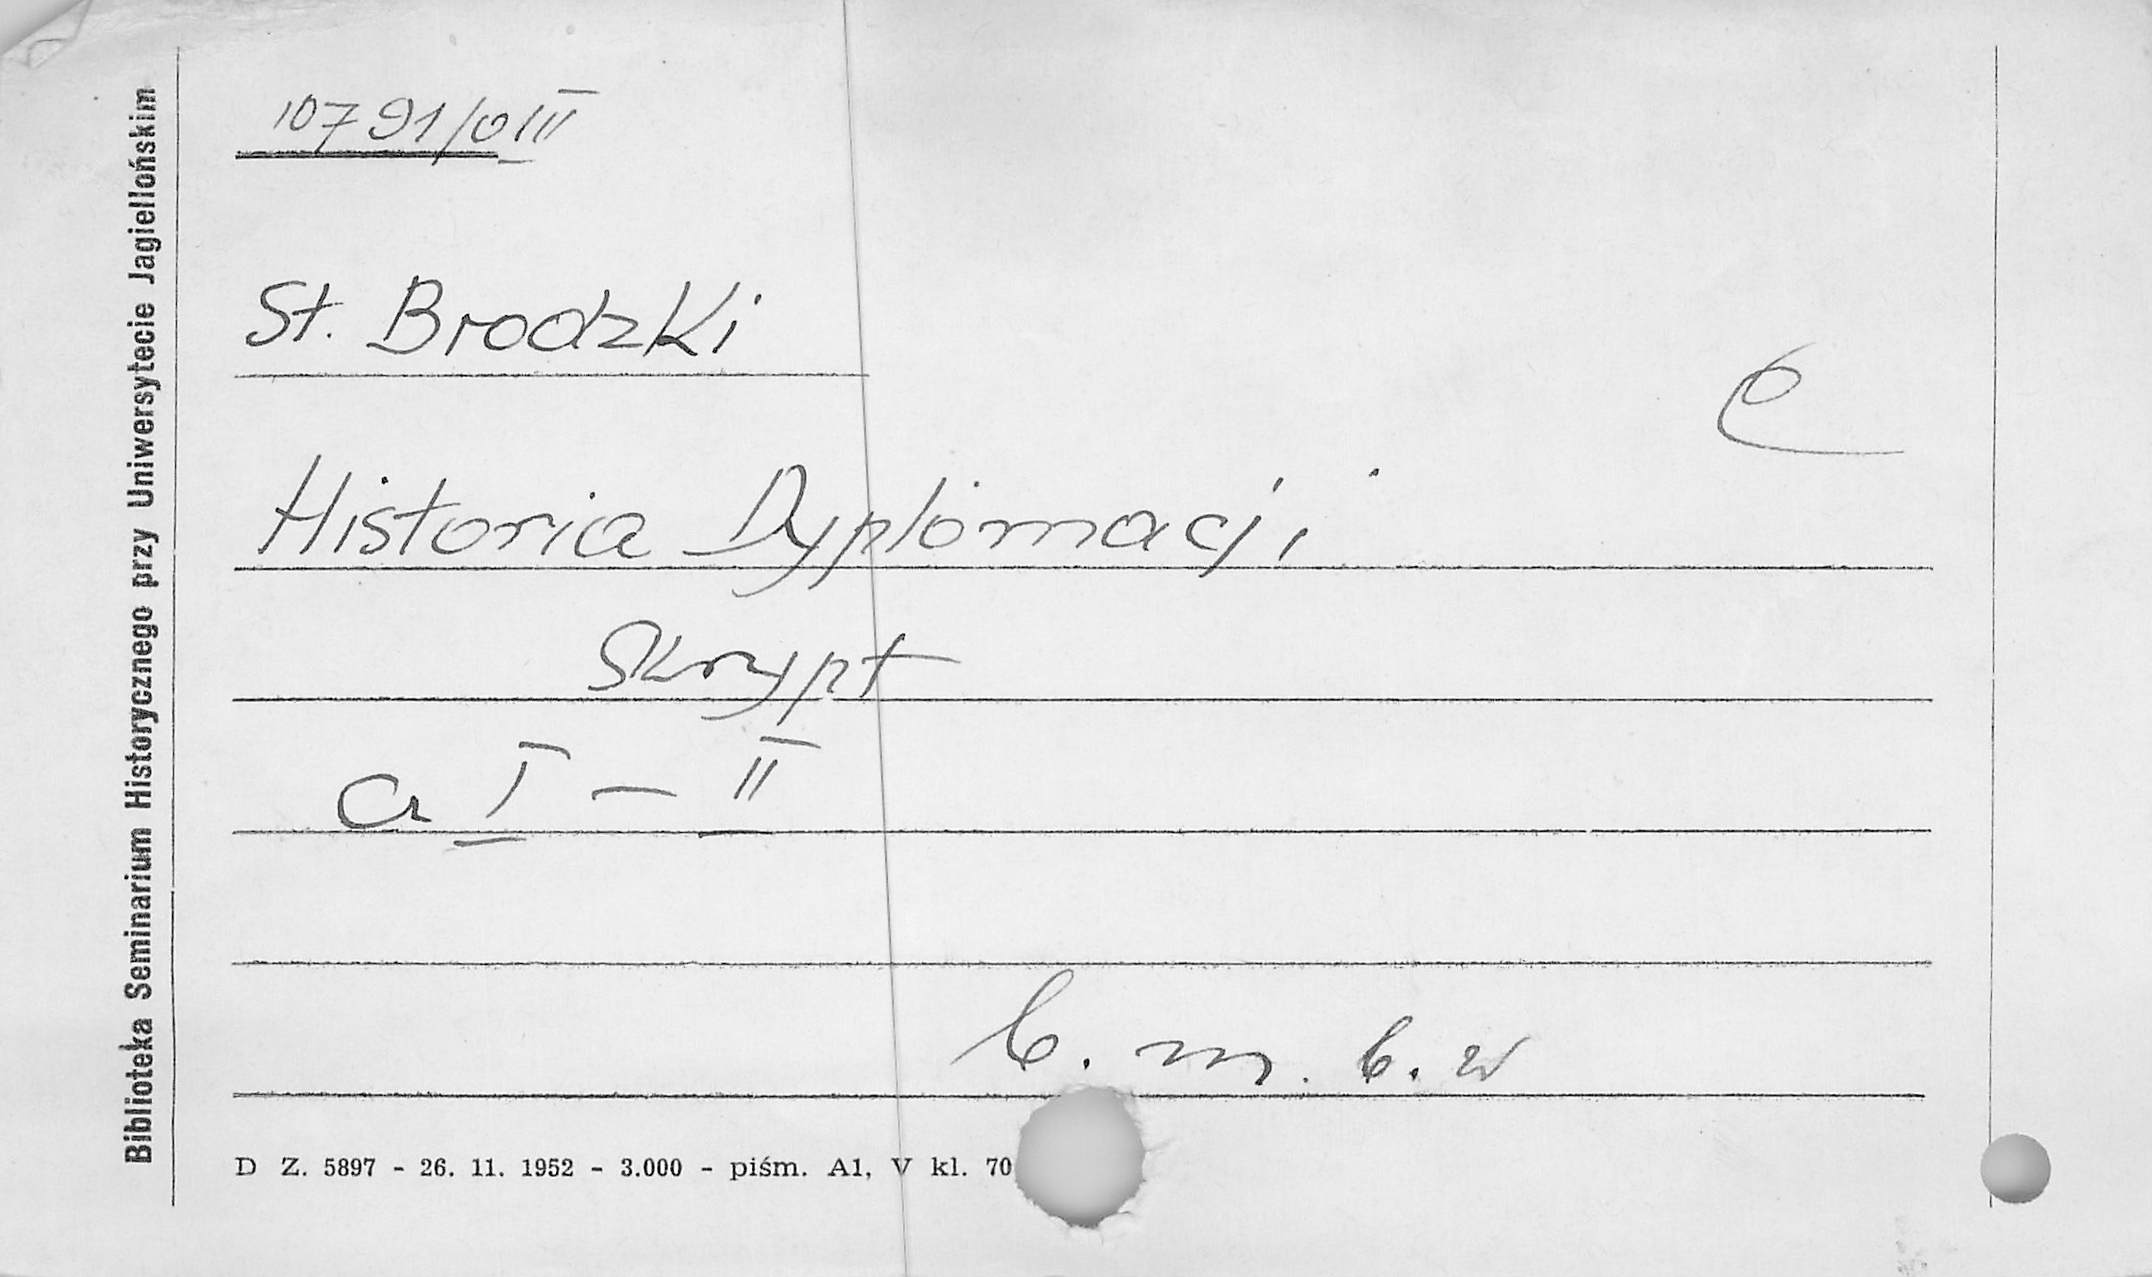 Biblioteka Seminarium Historycznego przy Uniwersytecie Jagiellońskim
10791/0 III
St. Brodzki
Historia Dyplomacji
Skrypt
I – II
b. m. b. w
D Z. 5897 - 26. 11. 1952 - 3.000 - piśm. A1, V kl. 70